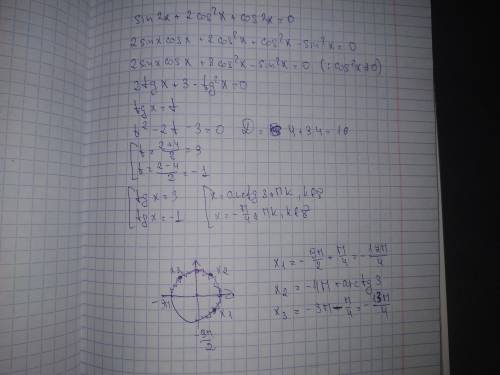 sin2x + 2cos²x + cos2x = 0
2sinx cosx + 2cos²x + cos²x - sin²x = 0
2sinx cosx + 3cos²x - sin²x = 0 (: cos²x≠0)
2tgx + 3 - tg²x = 0
tgx = t
t² - 2t - 3 = 0 D = 4 + 3·4 = 16
t = (2+4)/2 = 3
t = (2-4)/2 = -1
tgx = 3 x = arctg3 + πk, k∈Z
tgx = -1 x = -π/4 + πk, k∈Z
x3 x2
x₂ = -4π + arctg3
x1
x₃ = -3π - π/4 = -13π/4